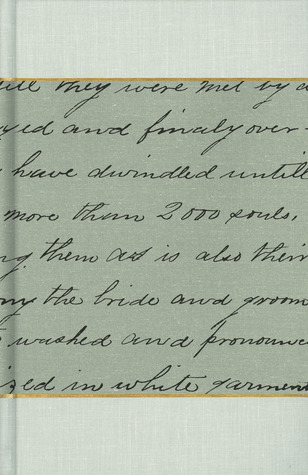 they were met by a
yed and finaly over-
have dwindled untill
more than 2000 souls,
ng them as is also their
ny the bride and groom
washed and pronounce
ized in white garment